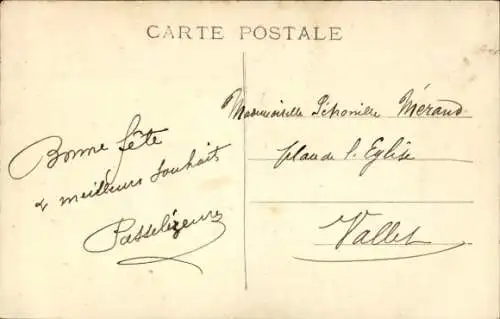 CARTE POSTALE
Bonne fête
& meilleurs souhaits
Mademoiselle Pétronille Méraud
place de l'Eglise
Vallet